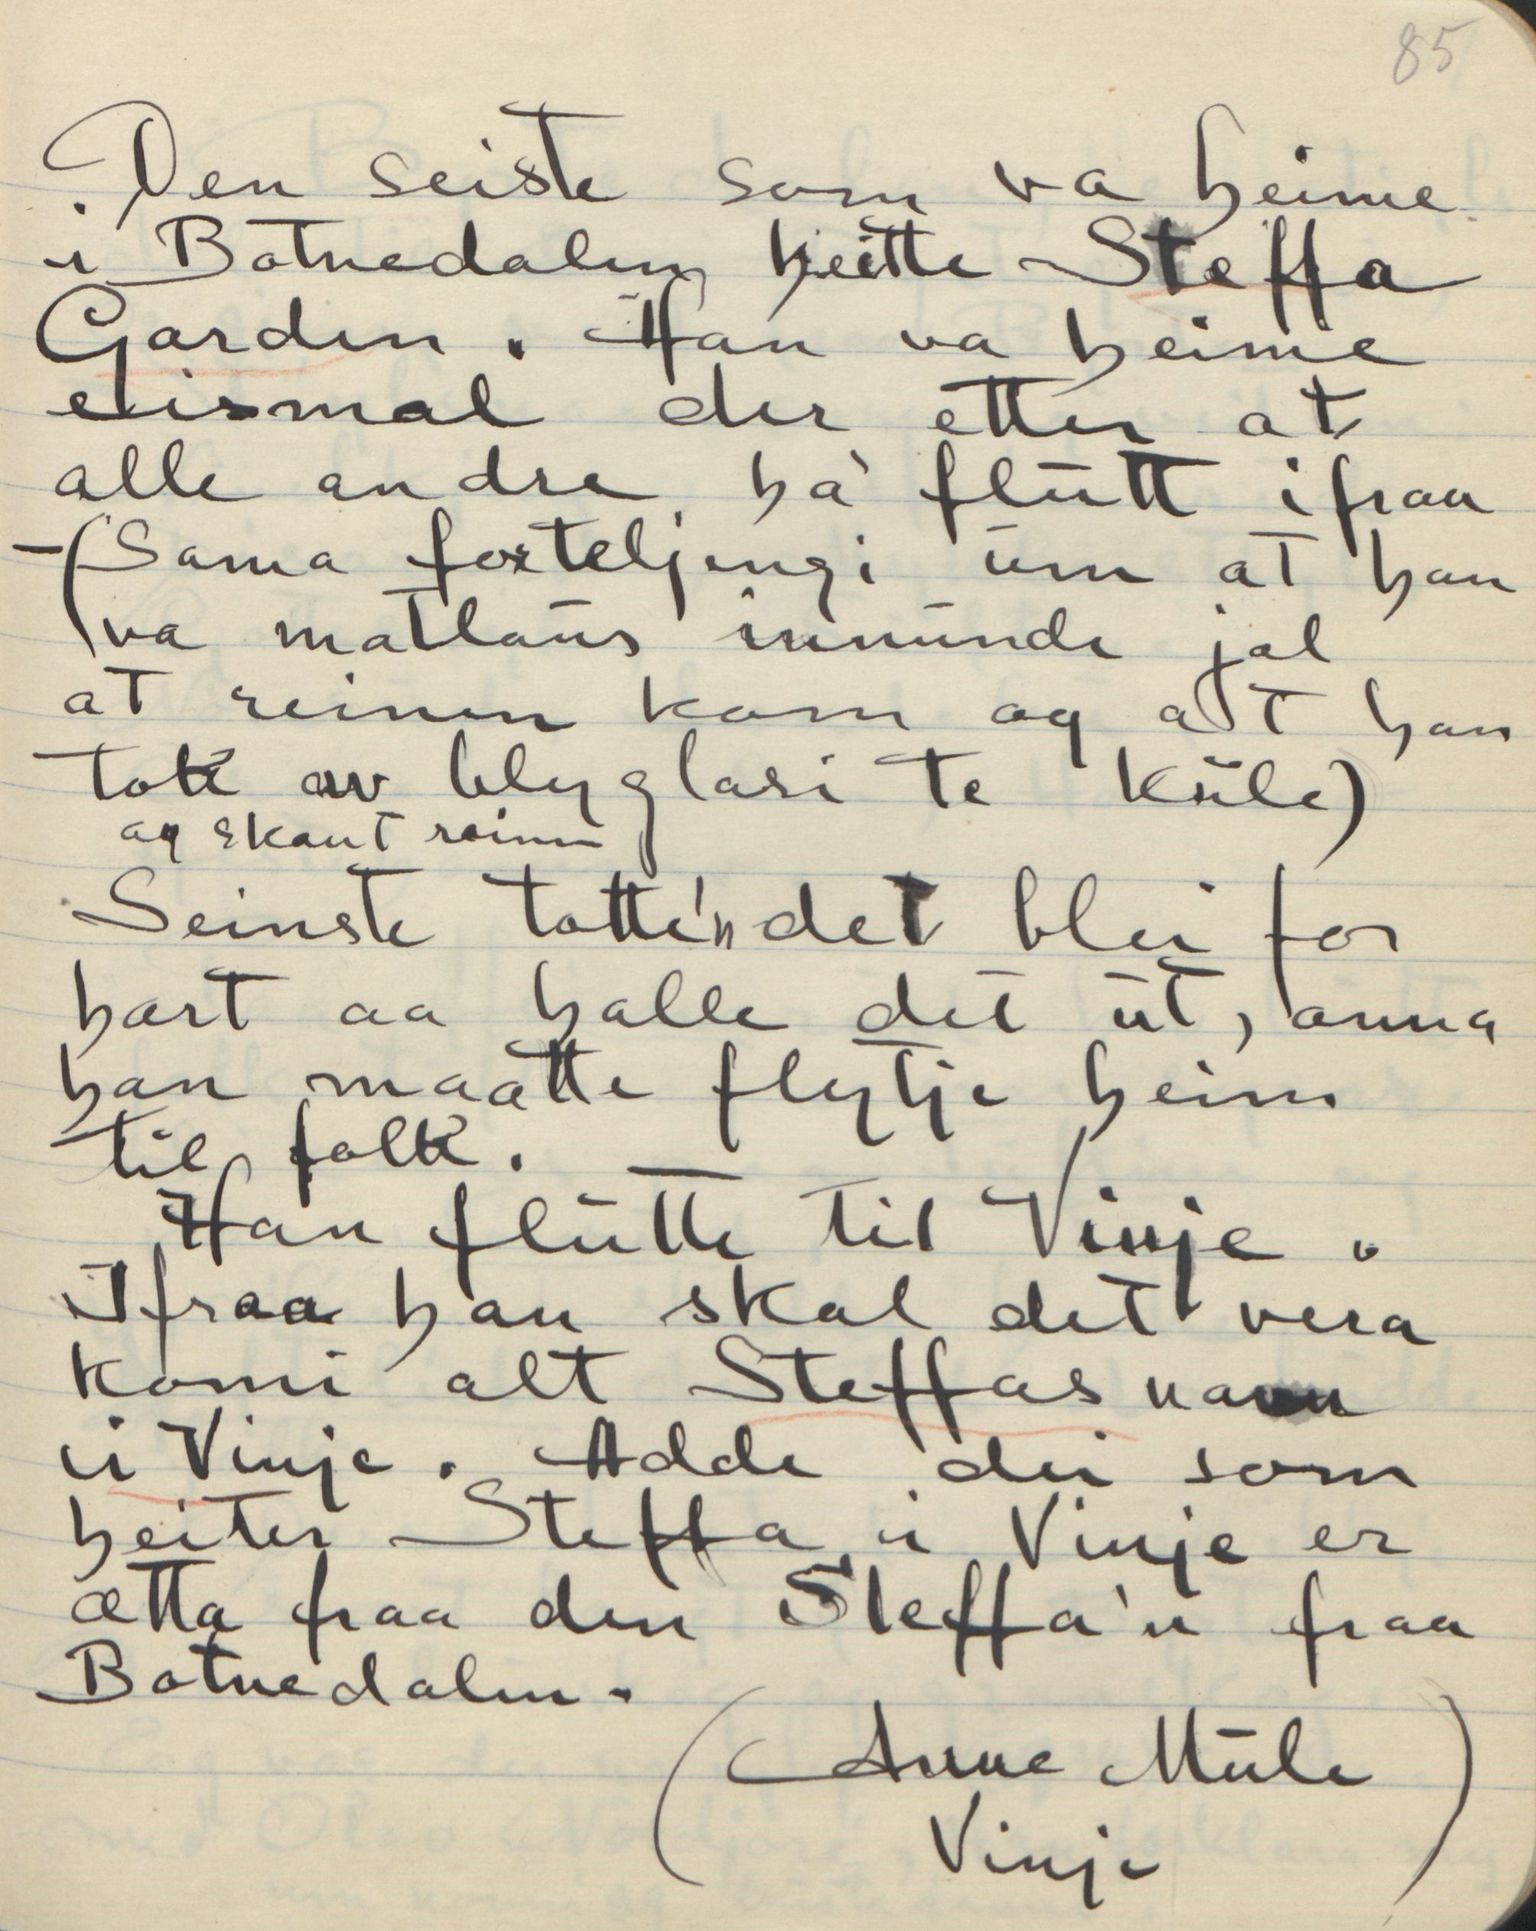 85
Den seiste som va heime
i Botnedalen heitte Steffa
Garden. Han va heime
eismal der etter at
alle andre ha flutt ifraa
(Sama forteljingi um at han
va matlaus innunde jol
at reinen kom og at han
tok av blyglasi te kule)
og skaut reinen
Seinste totte'n det blei for
hart aa halle det ut, onna
han maatte flytje heim
til folk.
Han flutte til Vinje.
Ifraa han skal det vera
komi alt Steffas navn
i Vinje. Adde dei som
heiter Steffa i Vinje er
ætta fraa den Steffa'n fraa
Botnedalen.
(Anne Mule
Vinje)